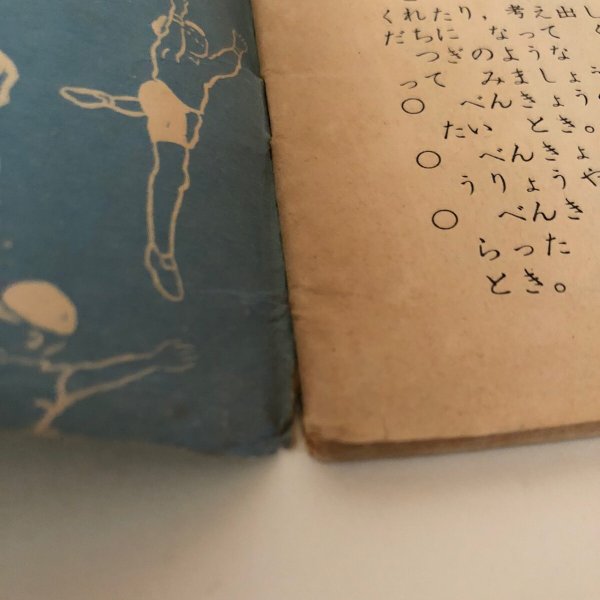 くれたり，考え出し
だちに なって
つぎのような
って みましょう
○ べんきょうの
たい とき。
○ べんきょ
うりょうや
○ べんき
らった
とき。